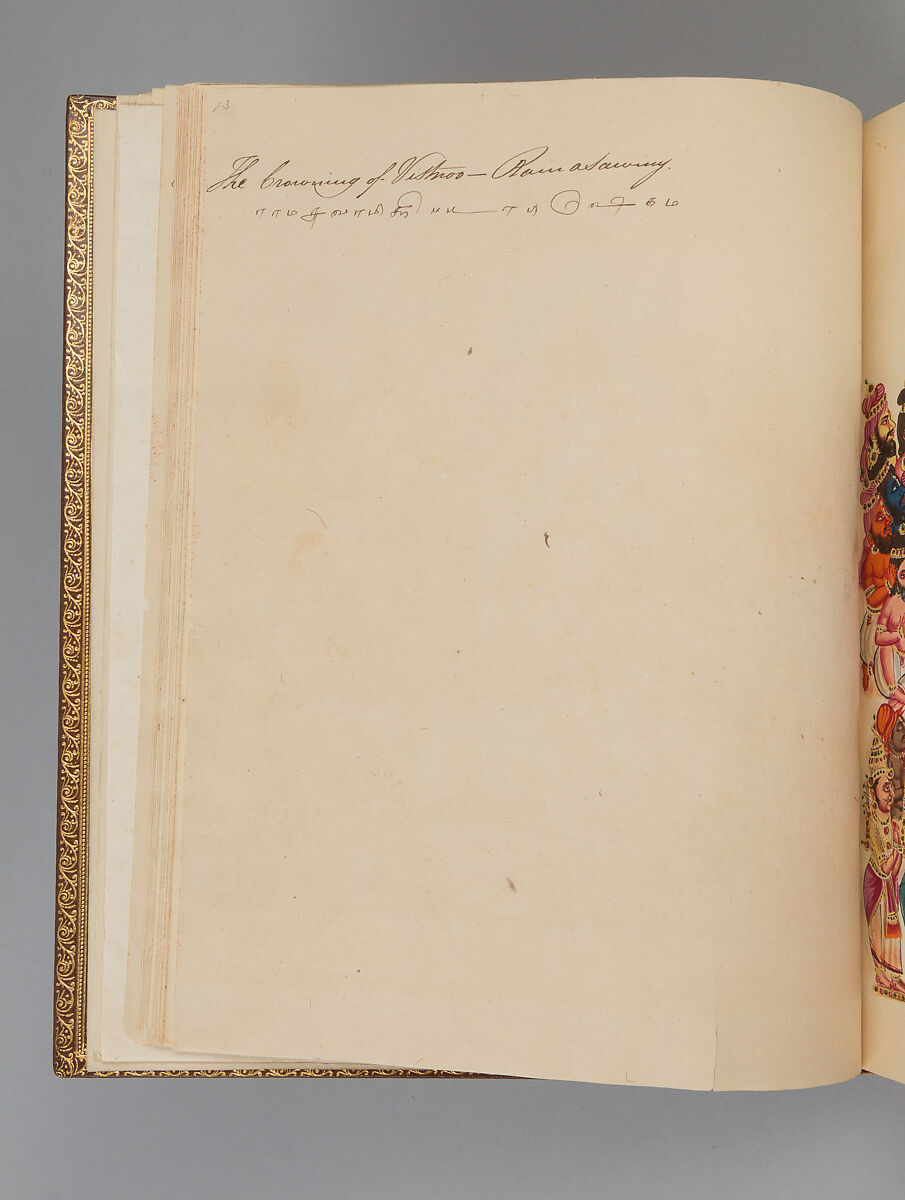 13
The Crowning of Vistnoo — Ramasawmy.
ராமசுவாமி